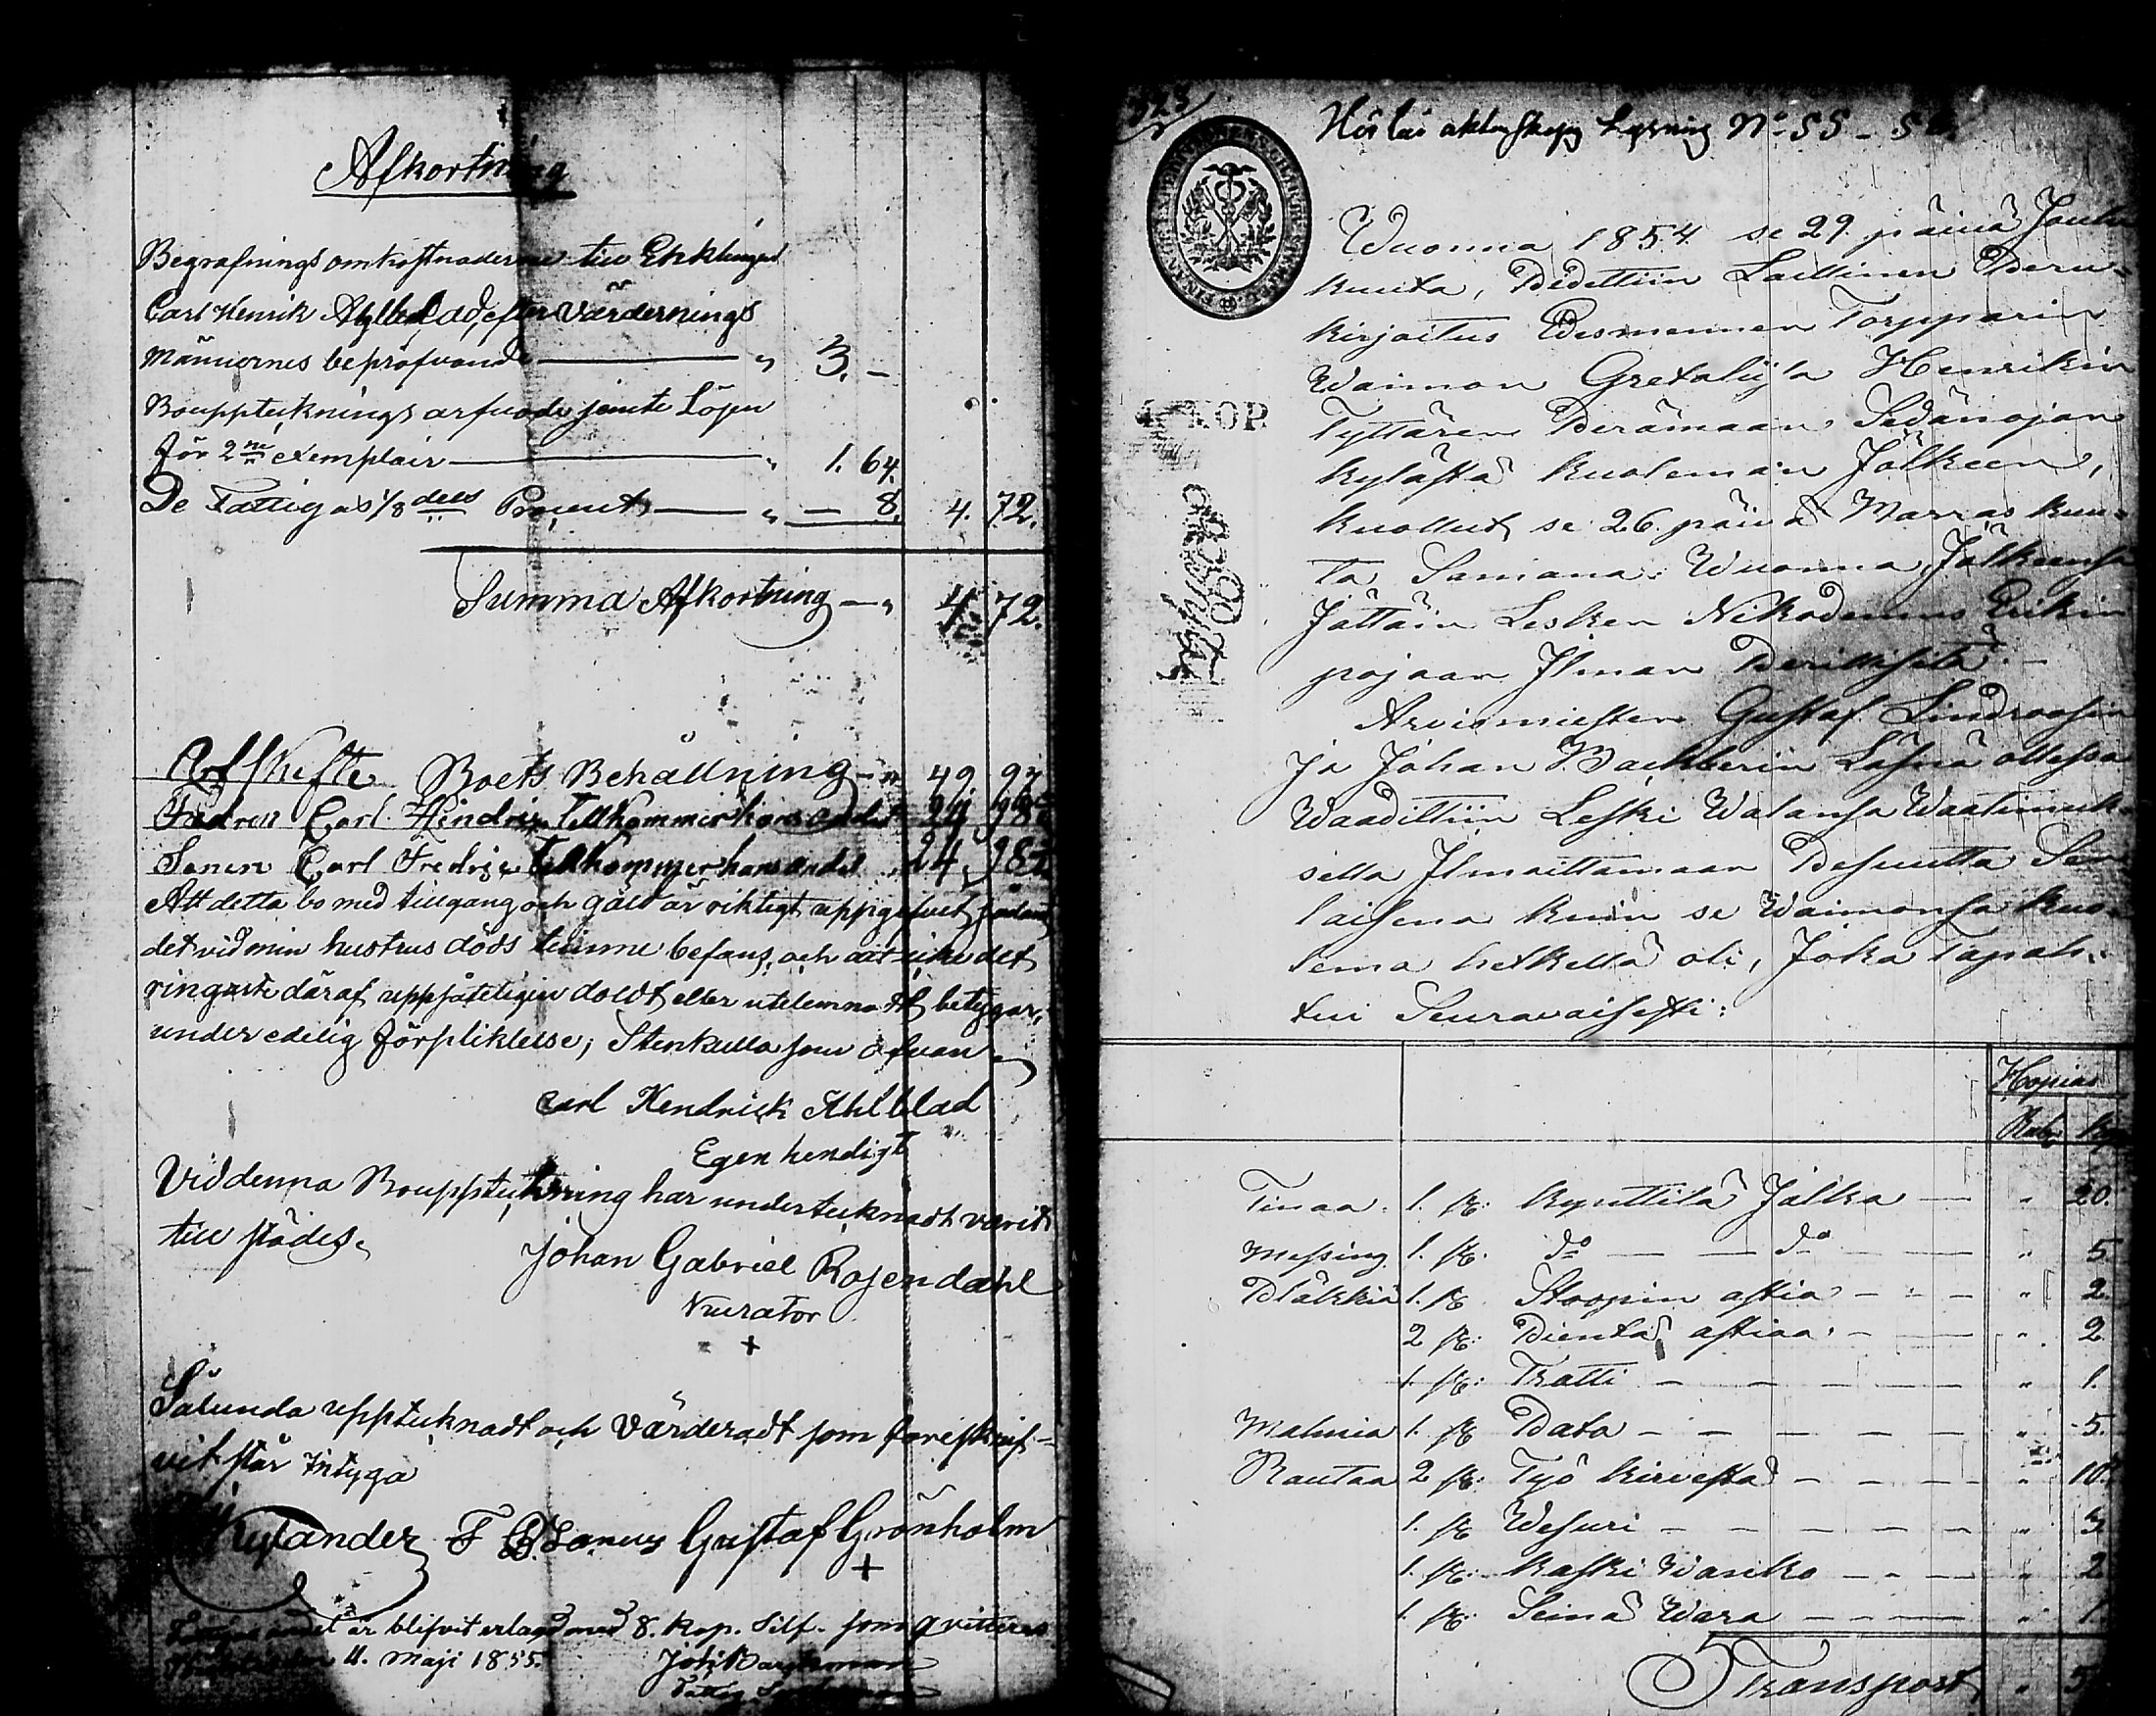 Afkortning
Begrafnings omkostnaderne till Enklingen
Carl Henrik Ahlblad, efter Värdernings
Männernes bepröfvande " 3. –
Bouppteknings arfvode jemte Lösen
för 2ne exemplair " 1. 64.
De Fattigas 1/8 dels Procent " — 8. 4. 72.
Summa Afkortning " 4. 72.
Arfskifte Boets Behållning " 49 97
Fadren Carl Hindric Tillkommer hans andel 24 98½
Sonen Carl Fredric Tillkommer hans andel 24, 98½
Att detta bo med tillgång och gäld är riktigt uppgifvet sådant
det vid min hustrus döds timme befans, och att icke det
ringaste däraf uppsåteligen doldt eller utelemnadt, betygar,
under edelig förpliktelse; Stenkulla som ofvan
Carl Hendrick Ahlblad
Egen hendigt
Vid denna Bouppteckning har undertecknadt varit
till städes.
Johan Gabriel Rosendahl
Kurator
+
Sålunda upptecknadt och Värderadt som föreskrif-
vit står Intyga
Nylander F B Lanus Gustaf Grönholm
+
Fattigas andel är blifvit erlagd med 8. Kop. Silf. som qvitteras
11. Maji 1855.
323
4 KOP.
Wuonna 1854 se 29. päivä Joulu
kuuta, Pidettiin Laillinen Peru-
kirjoitus Edesmennen Torpparin
Waimon Gretaliisa Henrikin
Tyttären Perämaan Sedänojan
kylästä kuoleman Jälkeen,
kuollut se 26. päivä Marras kuu-
ta Samana Wuonna, Jälkeensä
Jättäin Lesken Nikodemus Erikin
pojaan Ilman Perillisitä. –
Arviomiesten Gustaf Lindroosin
Ja Johan Backberin Läsnä ollessa
Waadittiin Leski Walansa Waatimuk-
sella Ilmoittamaan Pesuutta Sen
laisena kuin se Waimonsa kuo-
lema hetkellä oli, Joka Tapah-
tui Seuravaisesti:
Hopias
Rub. Kop.
Tinaa. 1. st: kynttilä Jalka " 20.
Messing 1. st. do do " 5.
Pläkkiä 1. st. Stoopin astia " 2.
2 st: Pientä astiaa " 2
1. st: Tratti " 1.
Malmia 1. st Pata " 5.
Rautaa 2 st: Työ kirvestä " 10.
1. st Wesuri " 3
1. st: kaski Wanko " 2
1. st. Seinä Wara " 1
Transport "